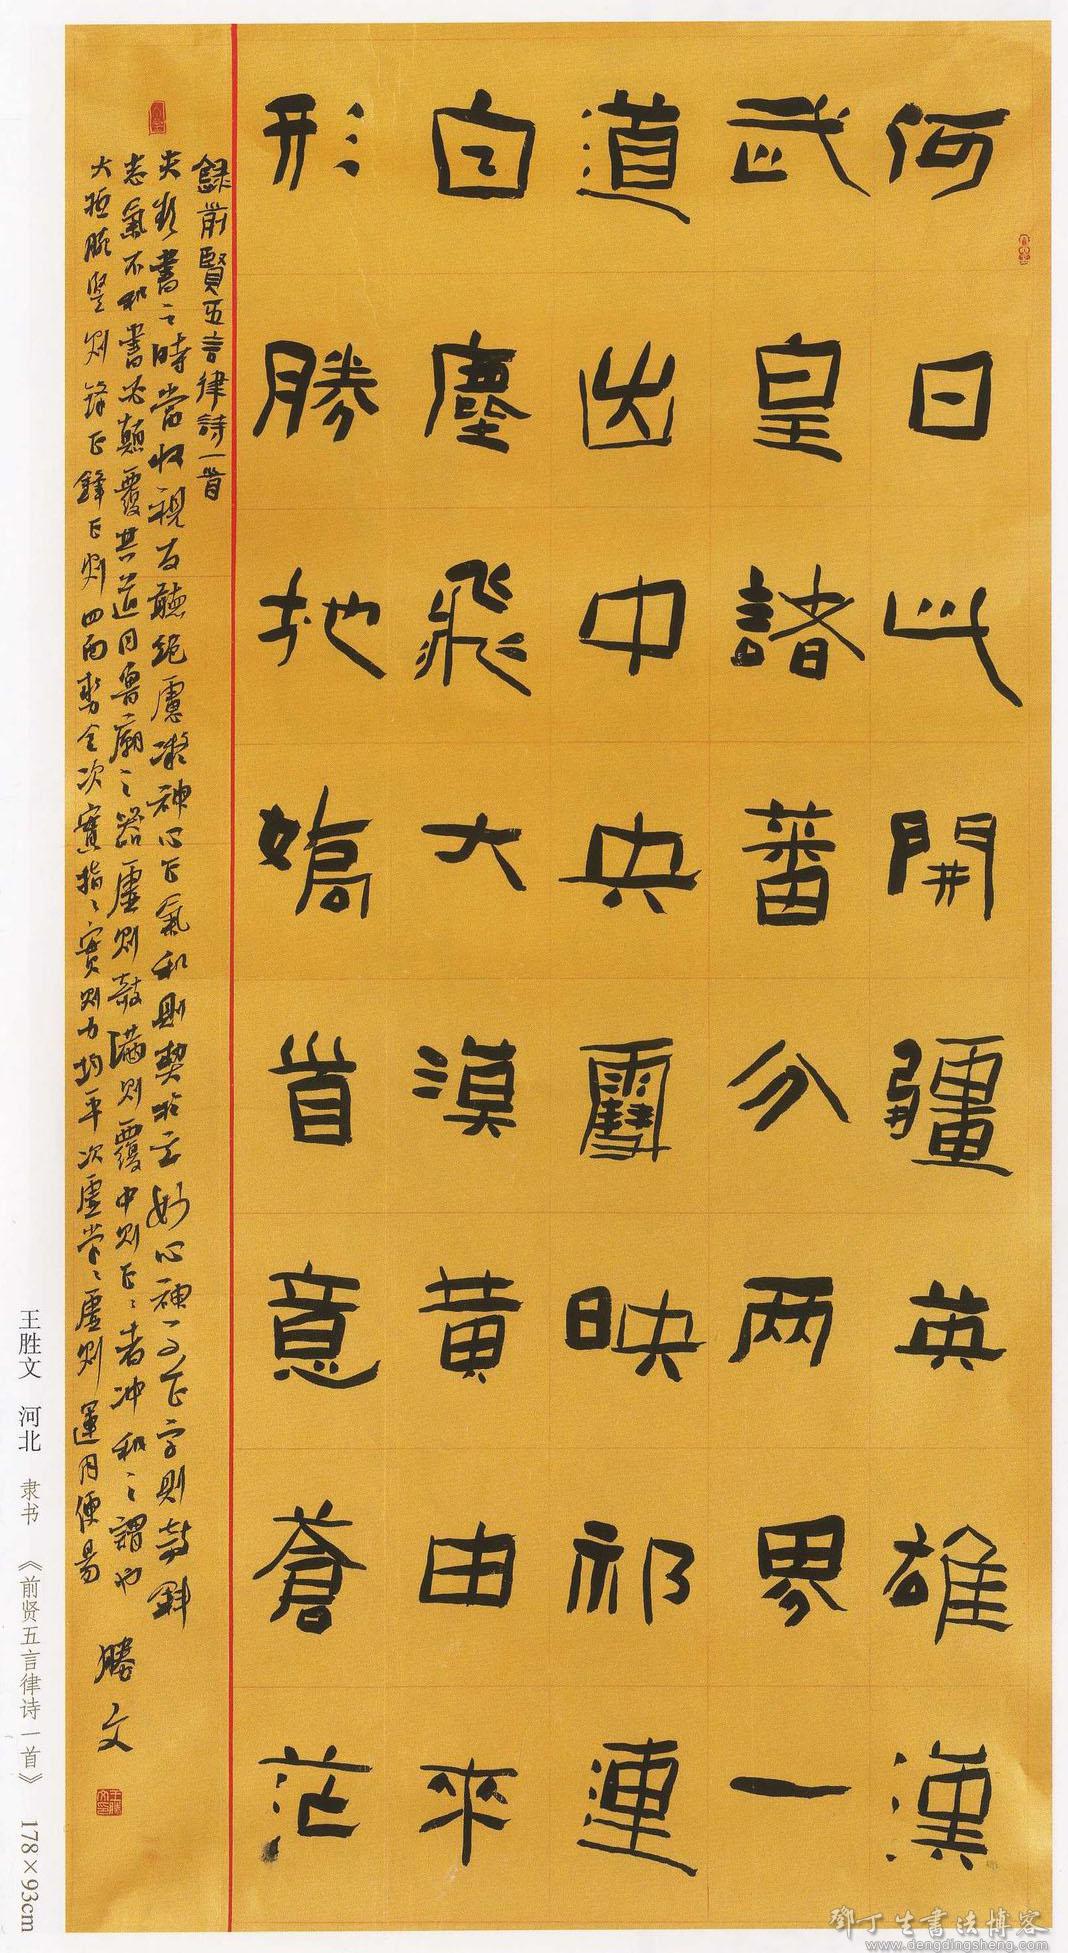 何日此開疆英雄漢
武皇諸蕃分两界一
道出中央雪映祁連
白塵飛大漠黃由來
形勝地嬌首意蒼茫
錄前賢五言律詩一首
夫欲書之時當收視反聽絕慮凝神心正氣和則契於玄妙心神不正字則攲斜
志氣不和書必顛覆其道同魯廟之器虛則攲滿則覆中則正正者冲和之謂也
大抵腕豎則鋒正鋒正則四面勢全次實指指實則力均平次虛掌掌虛則運用便易
勝文
王胜文 河北 隶书 《前贤五言律诗一首》 178×93cm
鄧丁生書法博客
www.dengdingsheng.com